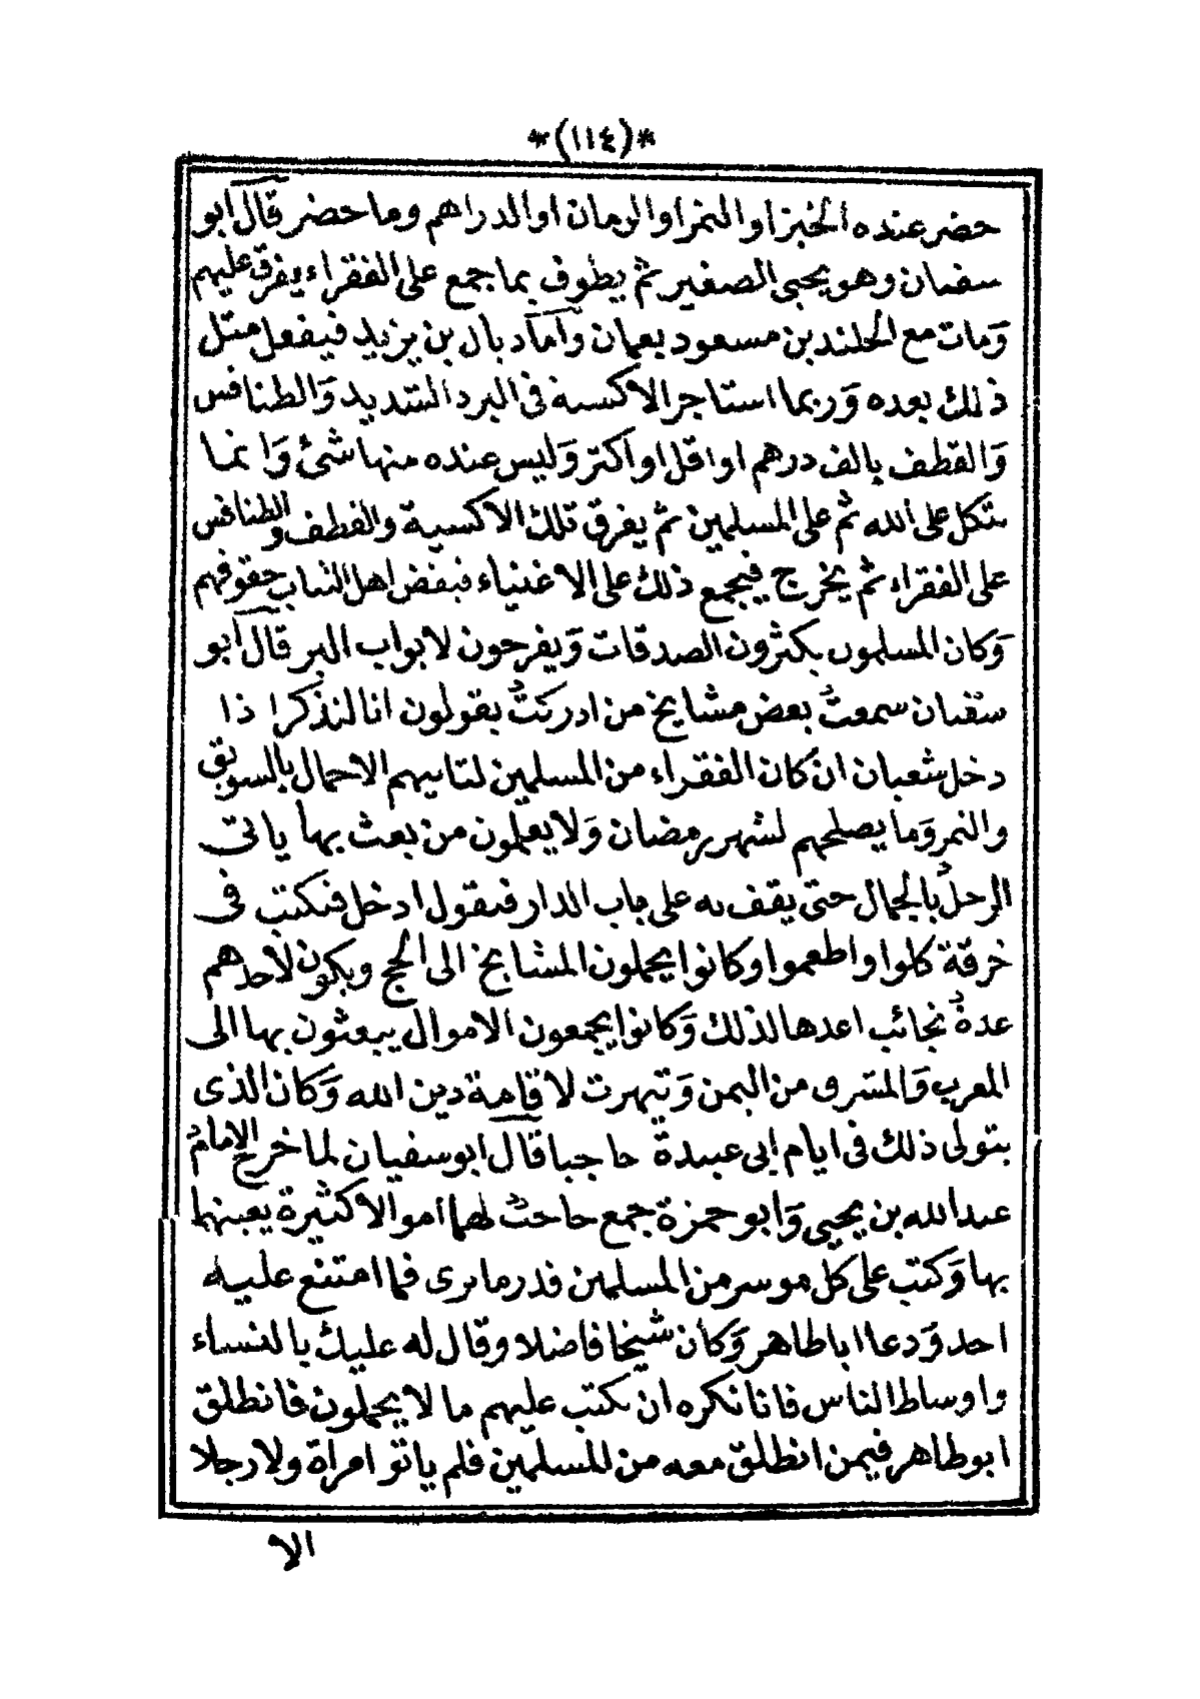 *(١١٤)*
حضر عنده الخبز او التمر او الرمان او الدراهم وما حضر قال ابو
سفيان وهو يحيى الصغير ثم يطوف بما جمع على الفقراء يفرق عليهم
وَمات مع الجلند بن مسعود بعمان وَآماد بال بن يزيد فيفعل مثل
ذلك بعده وَربما استاجر الاكسية فى البرد الشديد وَالطنافس
وَالقطف بالف درهم او اقل او اكثر وَليس عنده منها شئ وَانما
يتكل على الله ثم على المسلمين ثم يفرق تلك الاكسية والقطف والطنافس
على الفقراء ثم يخرج فيجمع ذلك على الاغنياء فيقض اهل الثياب حقوقهم
وَكان المسلمون يكثرون الصدقات وَيفرحون لابواب البر قال ابو
سفيان سمعتُ بعض مشايخ من ادركتُ يقولون انا لنذكر اذا
دخل شعبان ان كان الفقراء من المسلمين لتاتيهم الاحمال بالسويق
والتمر وَما يصلحهم لشهر رمضان وَلا يعلمون من بعث بها ياتى
الرجلُ بالجمال حتى يقف به على باب الدار فيقول ادخل فيكتب فى
خرقة كلوا واطعموا وكانوا يحملون المشايخ الى الحج ويكون لاحدهم
عدةُ نجائب اعدها لذلك وَكانوا يجمعون الاموال يبعثون بها الى
المغرب وَالمشرق من اليمن وَتيهرت لاقامة دين الله وَكان الذى
يتولى ذلك فى ايام ابى عبيدة حاجبا قال ابو سفيان لما خرج الامامُ
عبد الله بن يحيى وَابو حمزة جمع حاجبُ لهما اموالا كثيرة يعينهما
بها وَكتب على كل موسر من المسلمين قدر ما يرى فما امتنع عليه
احد وَدعا ابا طاهر وَكان شيخا فاضلا وقال له عليك بالنساء
واوساط الناس فانا نكره ان نكتب عليهم ما لا يحملون فانطلق
ابو طاهر فيمن انطلق معه من المسلمين فلم ياتو امراة ولا رجلا
الا